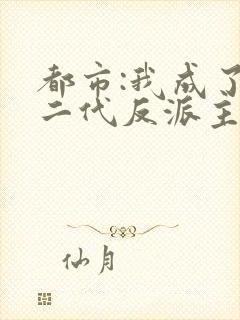 都市:我成了
二代反派主
仙月